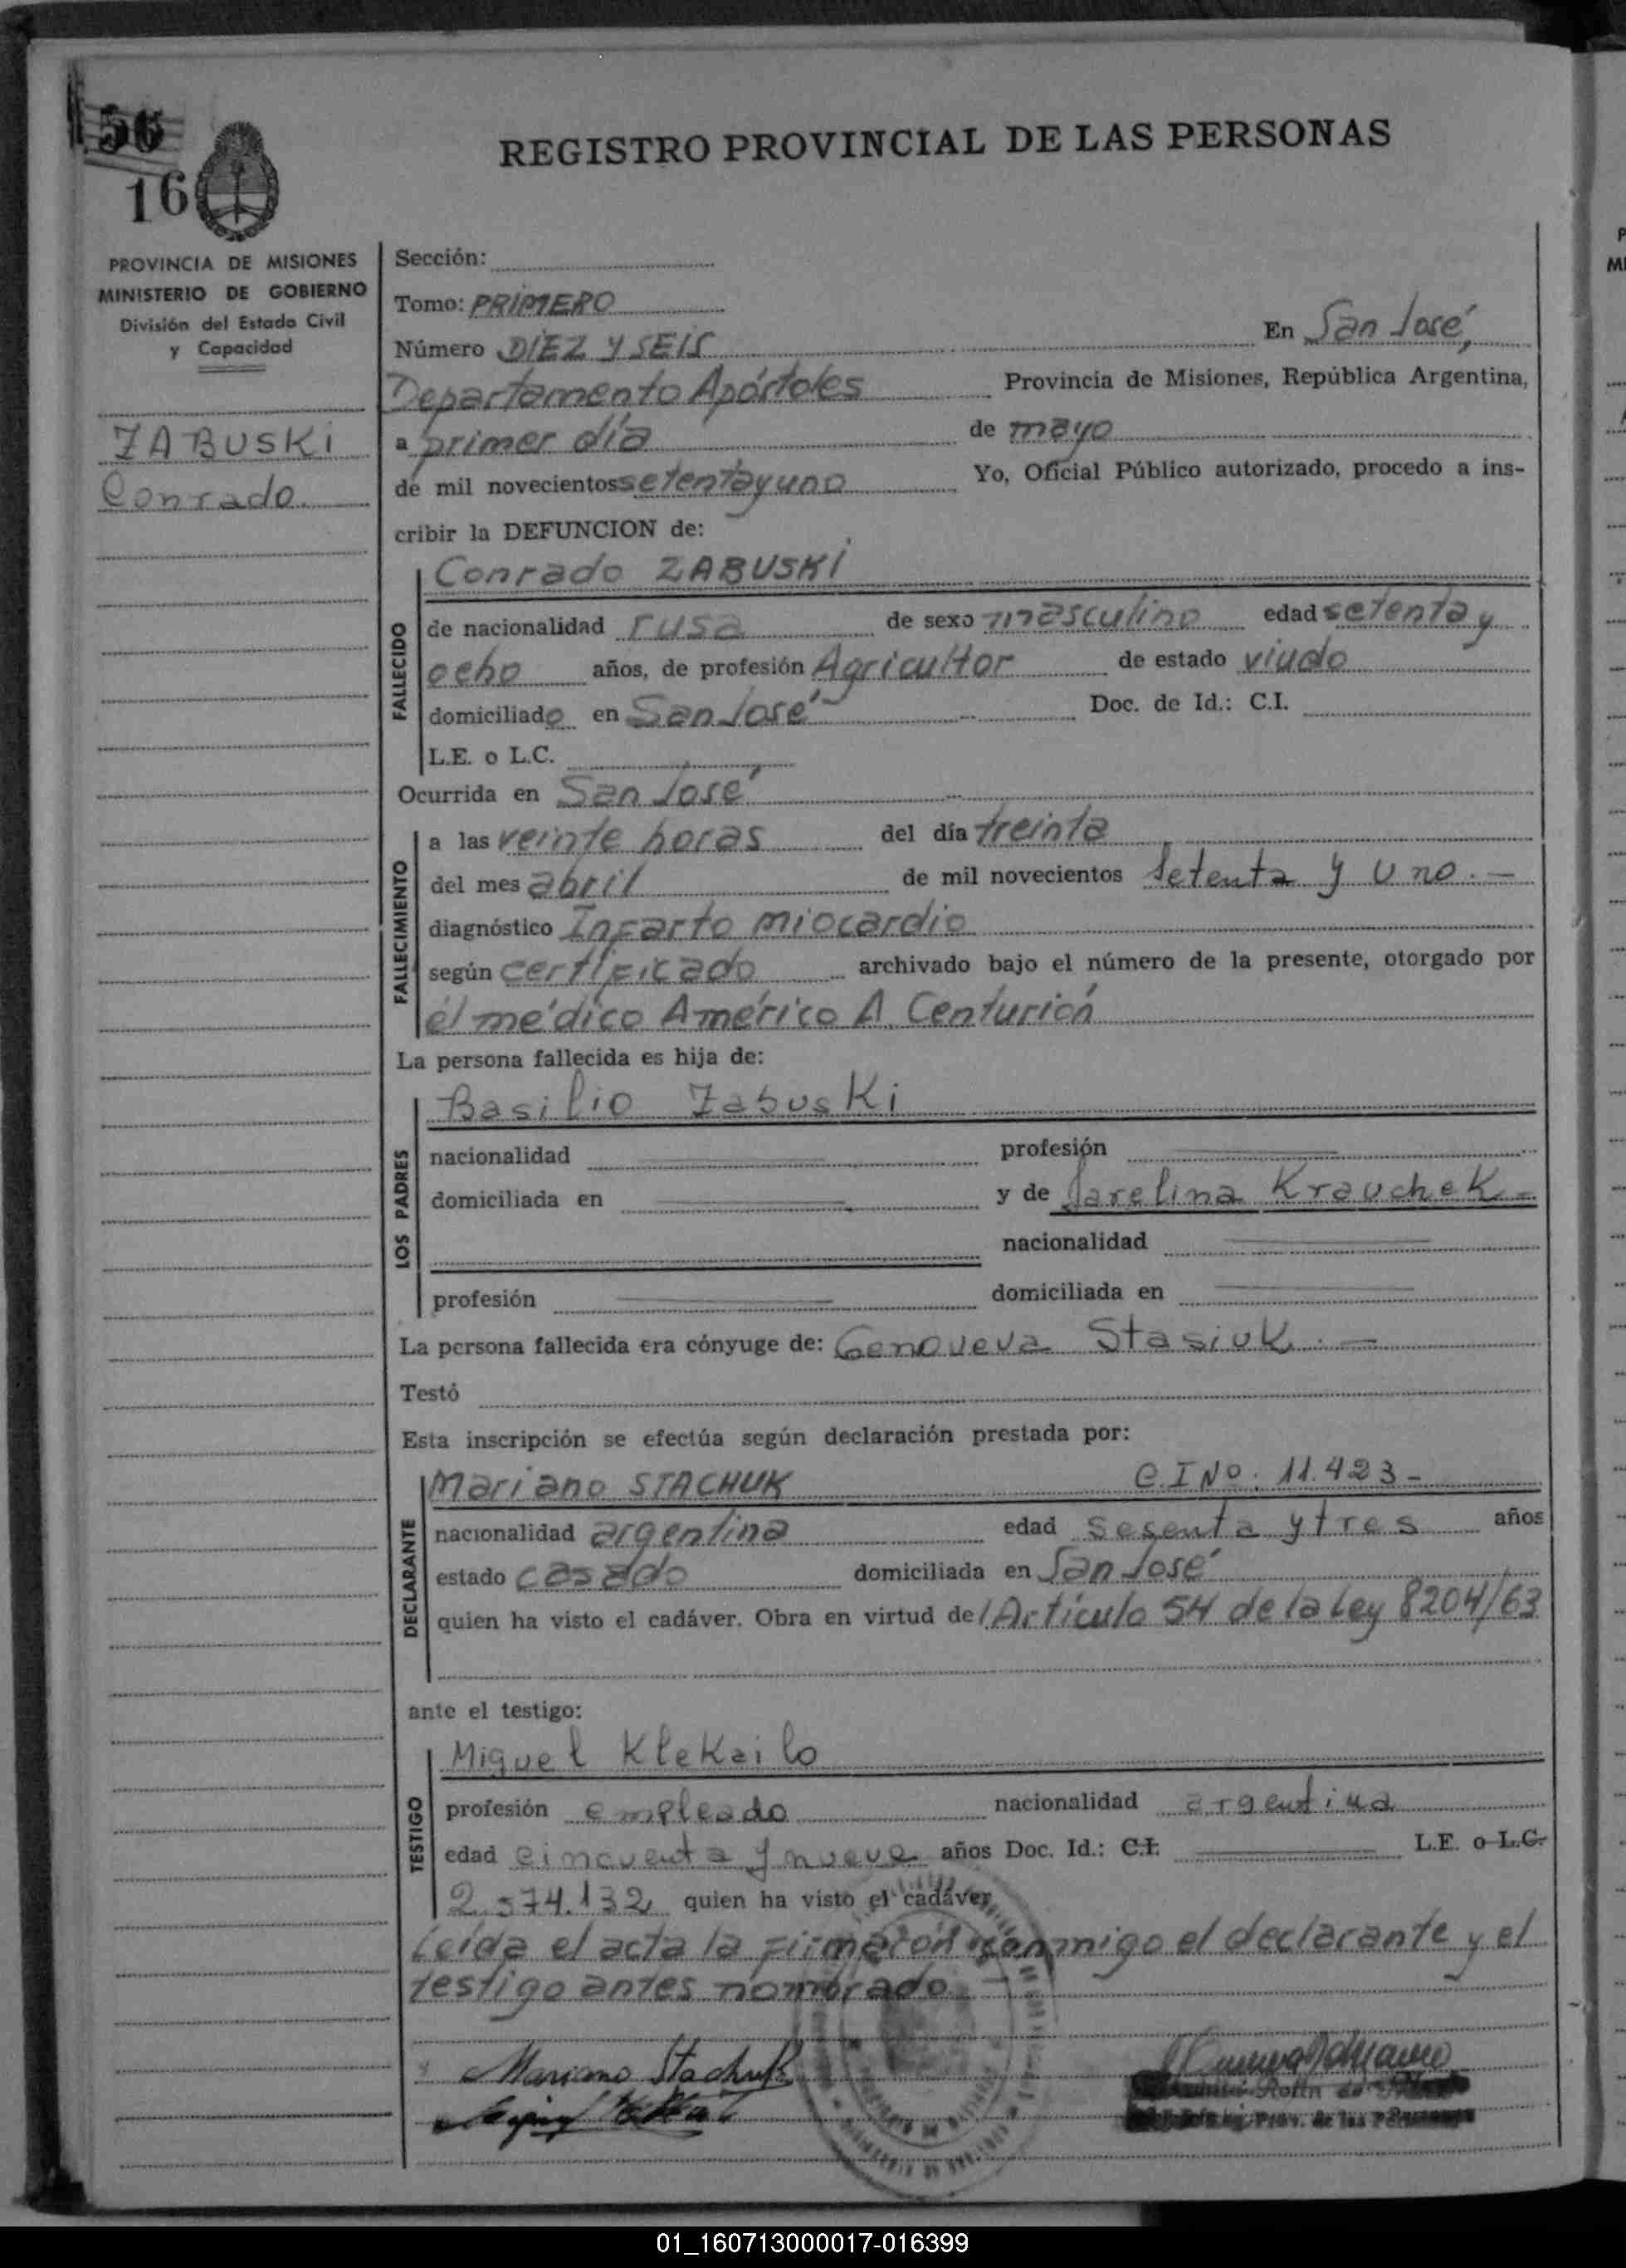 56
16
REGISTRO PROVINCIAL DE LAS PERSONAS
PROVINCIA DE MISIONES
MINISTERIO DE GOBIERNO
División del Estado Civil
y Capacidad
ZABUSKI
Conrado
Sección:
Tomo: PRIMERO
Número DIEZ Y SEIS En San José,
Departamento Apóstoles Provincia de Misiones, República Argentina,
a primer día de mayo
de mil novecientos setenta y uno Yo, Oficial Público autorizado, procedo a ins-
cribir la DEFUNCION de:
FALLECIDO
Conrado ZABUSKI
de nacionalidad rusa de sexo masculino edad setenta y
ocho años, de profesión Agricultor de estado viudo
domiciliado en San José Doc. de Id.: C.I.
L.E. o L.C.
Ocurrida en San José
FALLECIMIENTO
a las veinte horas del día treinta
del mes abril de mil novecientos Setenta y uno.-
diagnóstico Infarto miocardio
según certificado archivado bajo el número de la presente, otorgado por
él médico Américo A. Centurión
La persona fallecida es hija de:
LOS PADRES
Basilio Zabuski
nacionalidad profesión
domiciliada en y de Krauchek-
nacionalidad
profesión domiciliada en
La persona fallecida era cónyuge de: Genoveva Stasiuk.-
Testó
Esta inscripción se efectúa según declaración prestada por:
DECLARANTE
Mariano STACHUK C.I No. 11.423-
nacionalidad argentina edad sesenta y tres años
estado casado domiciliada en San José
quien ha visto el cadáver. Obra en virtud del Artículo 54 de la Ley 8204/63
ante el testigo:
TESTIGO
Miguel Klekailo
profesión empleado nacionalidad argentina
edad cincuenta y nueve años Doc. Id.: C.I. L.E. o L.C.
2.574.132 quien ha visto el cadáver
Leída el acta la firmaron conmigo el declarante y el
testigo antes nombrado.-
Mariano Stachuk
Prov. de las Personas
01_160713000017-016399